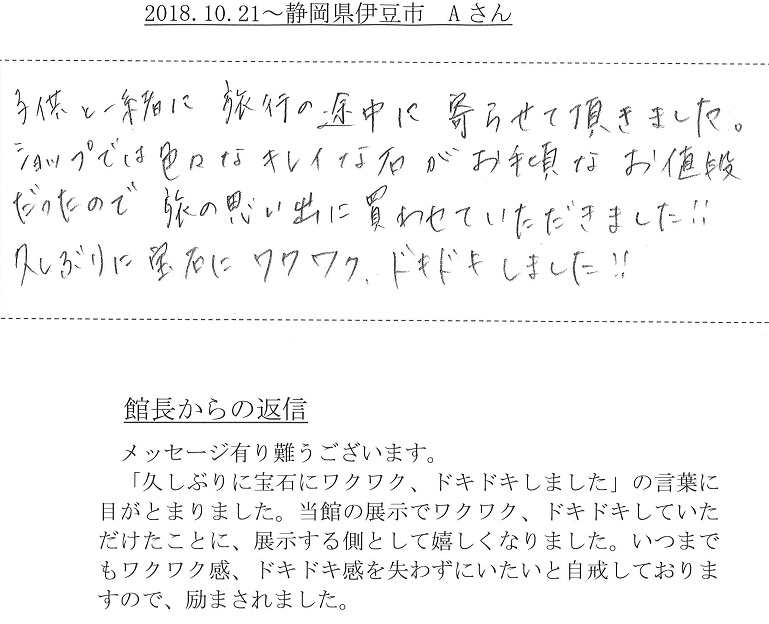 2018.10.21～静岡県伊豆市　Aさん
子供と一緒に 旅行の途中に 寄らせて頂きました。
ショップでは色々なキレイな石がお手頃なお値段
だったので 旅の思い出に買わせていただきました!!
久しぶりに宝石にワクワク、ドキドキしました!!
館長からの返信
メッセージ有り難うございます。
「久しぶりに宝石にワクワク、ドキドキしました」の言葉に
目がとまりました。当館の展示でワクワク、ドキドキしていた
だけたことに、展示する側として嬉しくなりました。いつまで
もワクワク感、ドキドキ感を失わずにいたいと自戒しておりま
すので、励まされました。